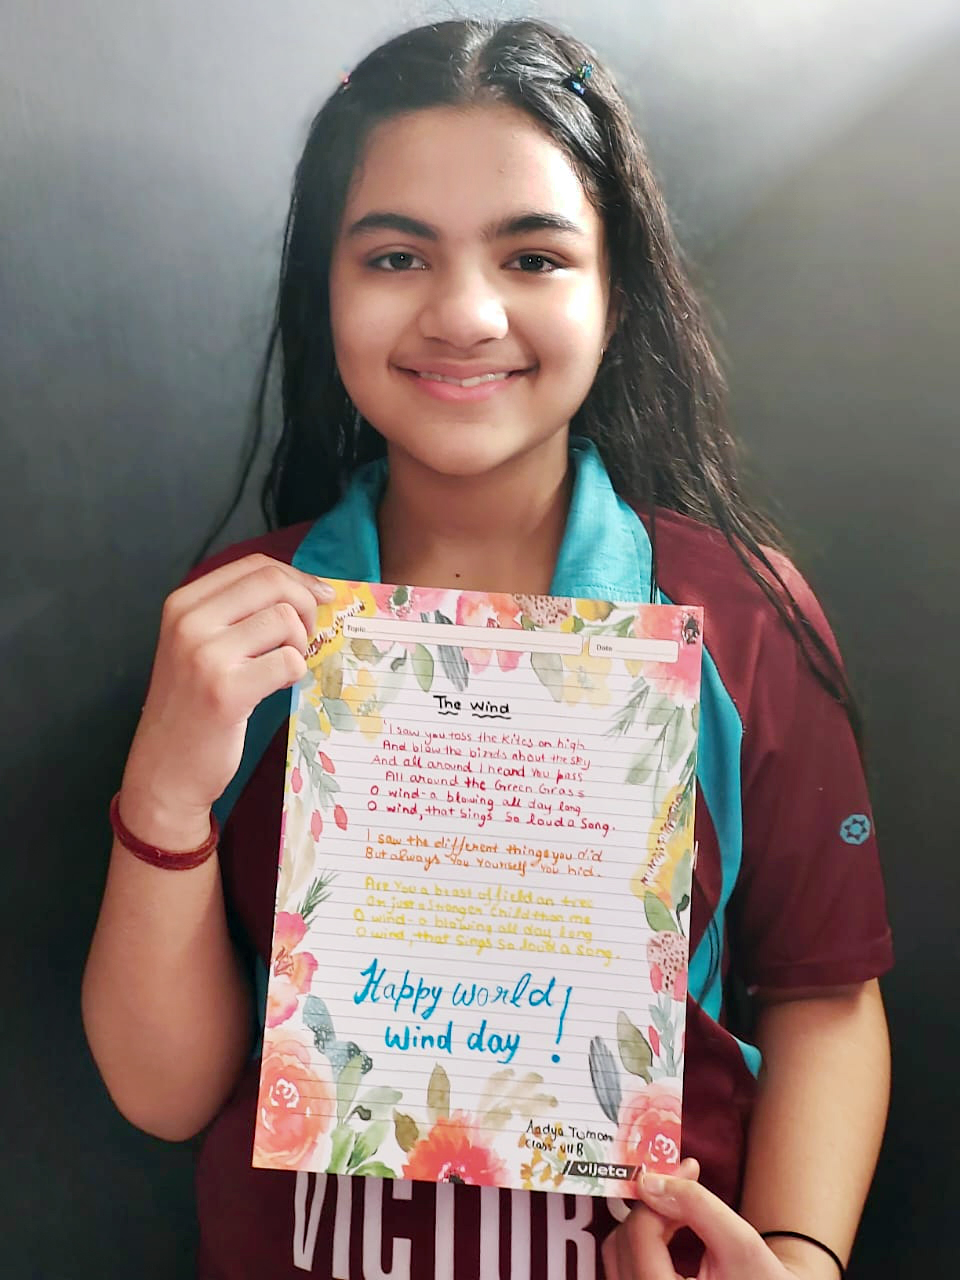 Topic
Date
The Wind
'I saw you toss the kites on high
And blow the birds about the sky
And all around I heard You pass
All around the Green Grass
O wind-a blowing all day long
O wind, that sings so loud a song.
I saw the different things you did
But always You Yourself You hid.
Are You a beast of field an tree
Or just a Stronger Child than me
O wind-a blowing all day long
O wind, that sings so loud a song.
Happy world
Wind day!
Aadya Tomar
Class-VII B
vijeta
VICTORS